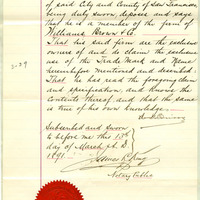 of said City and County of San Francisco
being duly sworn, deposes and says
that he is a member of the firm of
Williams Brown & Co.
That his said firm are the exclusive
owners of and do claim the exclusive
use of the Trade Mark and Name
hereinbefore mentioned and described.
That he has read the foregoing claim
and specification, and knows the
Contents thereof, and that the same
is true of his own knowledge.
Subscribed and sworn
to before me this 13th
day of March A.D.
1891.
Notary Public